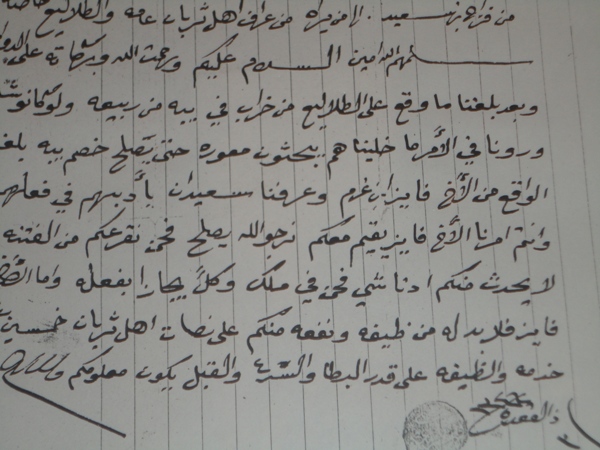 من فزاع بن سعيد. الى من يراه من عراف اهل ثربان عامه والطلاليع خاصة
سلمهم الله امين السلام عليكم ورحمت الله وبركاته على الدوام
وبعد بلغنا ما وقع على الطلاليع من خراب في بيه من ربيعه ولو كانو
ورونا في الأمر ما خليناهم يبحثون معوره حتى يصلح خصم بيه
الواقع من الأخ فايز ابن غرم وعرفنا سعيدان يأدبهم في فعلهم
وانتم امرنا الأخ فايز يقيم معكم نرجو الله يصلح فحن نقرعكم من الفتنه
لا يحدث منكم ادنا شي فحن في ملك وكلً يجازا بفعله واما الأخ
فايز فلا بد له من ظيفه ونفعه منكم على نصات اهل ثربان خمسين
خدمه والظيفه على قدر البطا والسرع والقبل يكون معلومكم والسلام
ذالقعده